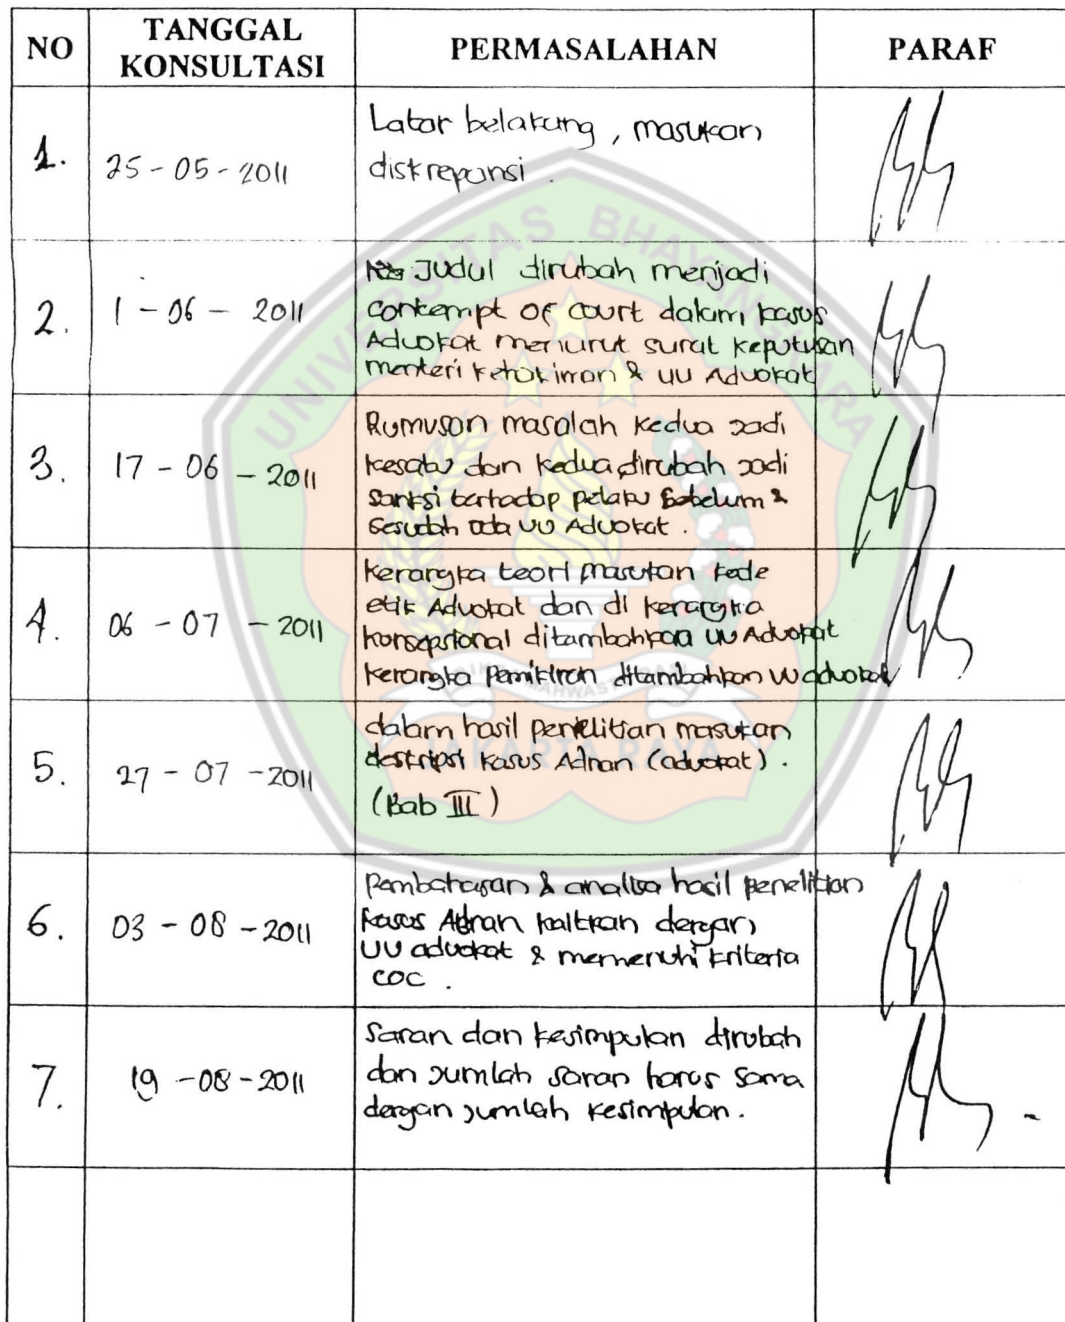 NO TANGGAL KONSULTASI PERMASALAHAN PARAF
1. 25 - 05 - 2011
Latar belakang, masukan
diskrepansi.
2. 1 - 06 - 2011
Judul dirubah menjadi
contempt of court dalam kasus
Advokat menurut surat keputusan
menteri kehakiman & UU Advokat
3. 17 - 06 - 2011
Rumusan masalah kedua jadi
kesatu dan kedua dirubah jadi
sanksi terhadap pelaku sebelum &
sesudah ada UU Advokat.
4. 06 - 07 - 2011
Kerangka teori masukan kode
etik Advokat dan di kerangka
konsepsional ditambahkan UU Advokat
kerangka pemikiran ditambahkan UU advokat
5. 27 - 07 - 2011
dalam hasil penelitian masukan
deskripsi kasus Adnan (advokat).
(Bab III)
6. 03 - 08 - 2011
Pembahasan & analisa hasil penelitian
kasus Adnan kaitkan dengan
UU advokat & memenuhi kriteria
COC.
7. 19 - 08 - 2011
Saran dan kesimpulan dirubah
dan jumlah saran harus sama
dengan jumlah kesimpulan.
UNIVERSITAS BHAYANGKARA
JAKARTA RAYA